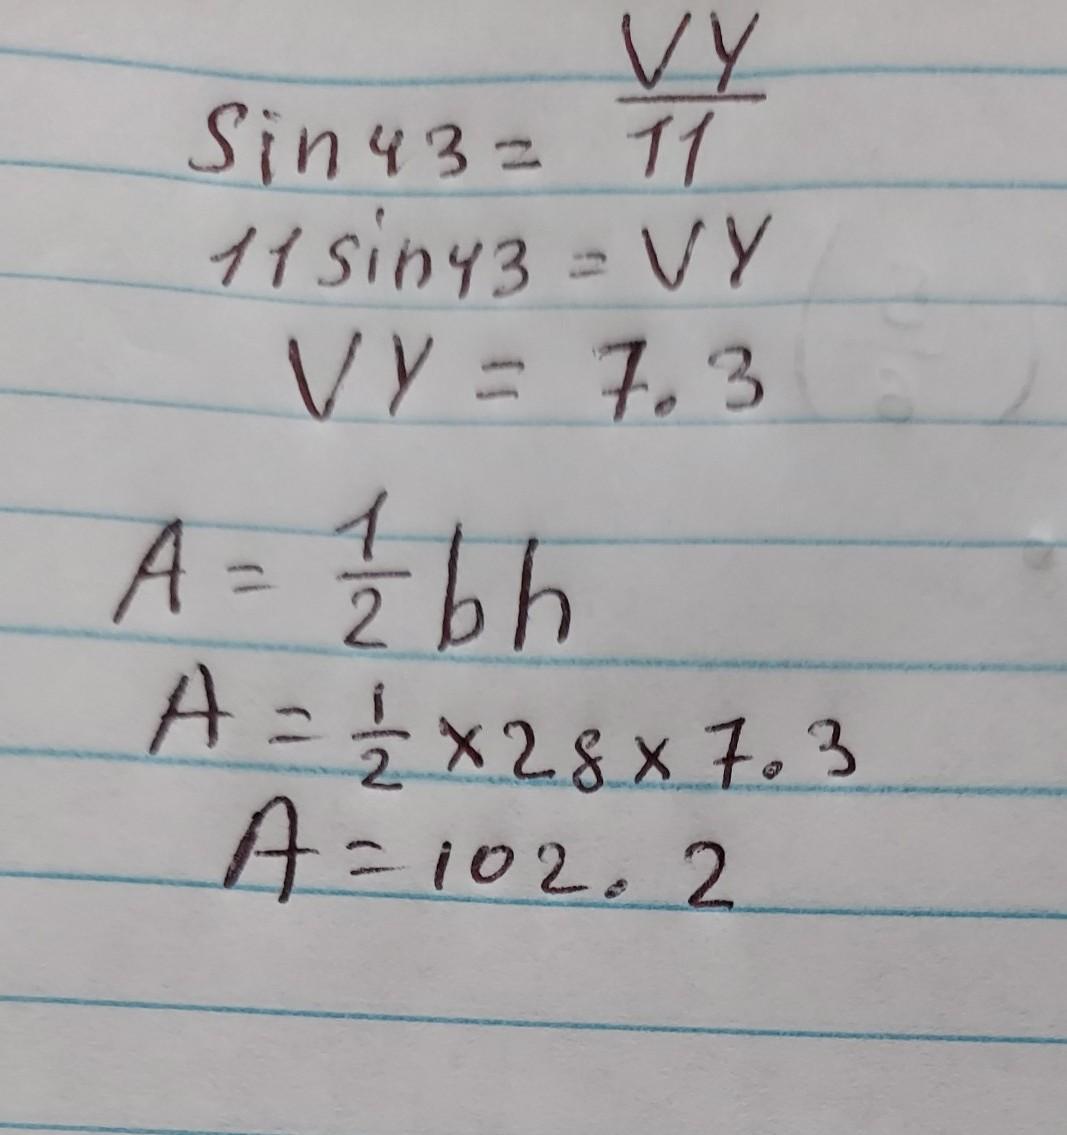 Sin 43 = VY/11
11 sin 43 = VY
VY = 7.3
A = 1/2 bh
A = 1/2 × 28 × 7.3
A = 102.2